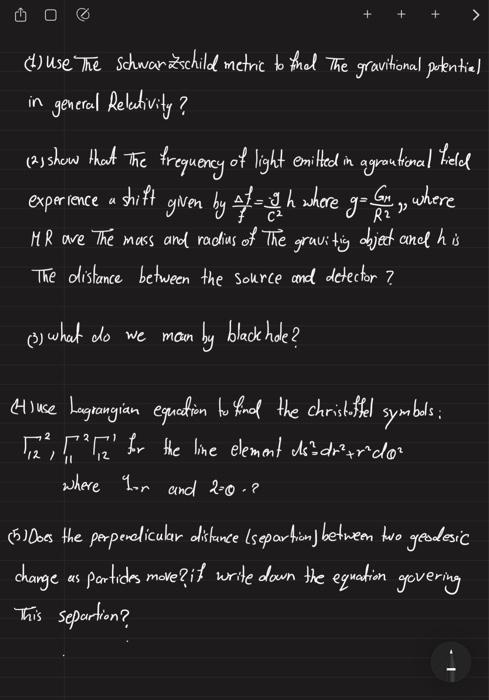 (1) Use The Schwarzschild metric to find The gravitional potential
in general Relativity?
(2) show that The frequency of light emitted in agravitional field
experience a shift given by Δf/f = g/c² h where g = GM/R² ,, where
M R are The mass and radius of The gravitig object and h is
The distance between the source and detector?
(3) what do we mean by black hole?
(4) use Lagrangian equation to find the christoffel symbols:
Γ₁₂², Γ₁₁² Γ₁₂¹ for the line element ds²=dr²+r²dθ²
where 1=r and 2=θ .?
(5) Does the perpendicular distance (separtion) between two geodesic
change as particles move? if write down the equation govering
This separtion?